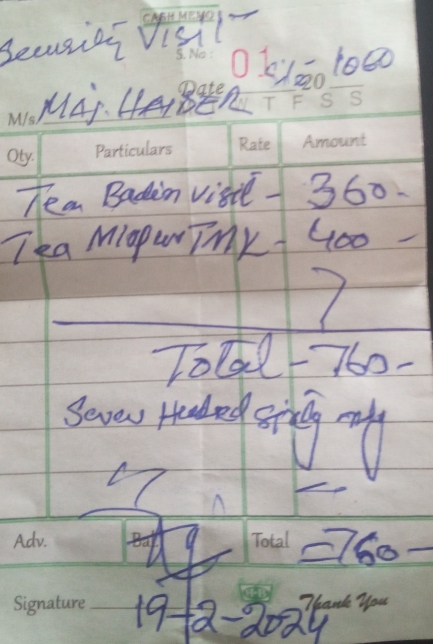 CASH MEMO
Security Visit
S.No:
Date 20
M/s Maj. HAIDER
T F S S
Qty. Particulars Rate Amount
Tea Badin visit - 360-
Tea Mirpur TMK - 400 -
Total - 760-
Seven Hundred Sixty only
Adv. Bal. Total = 760-
Signature Thank You
19-2-2024